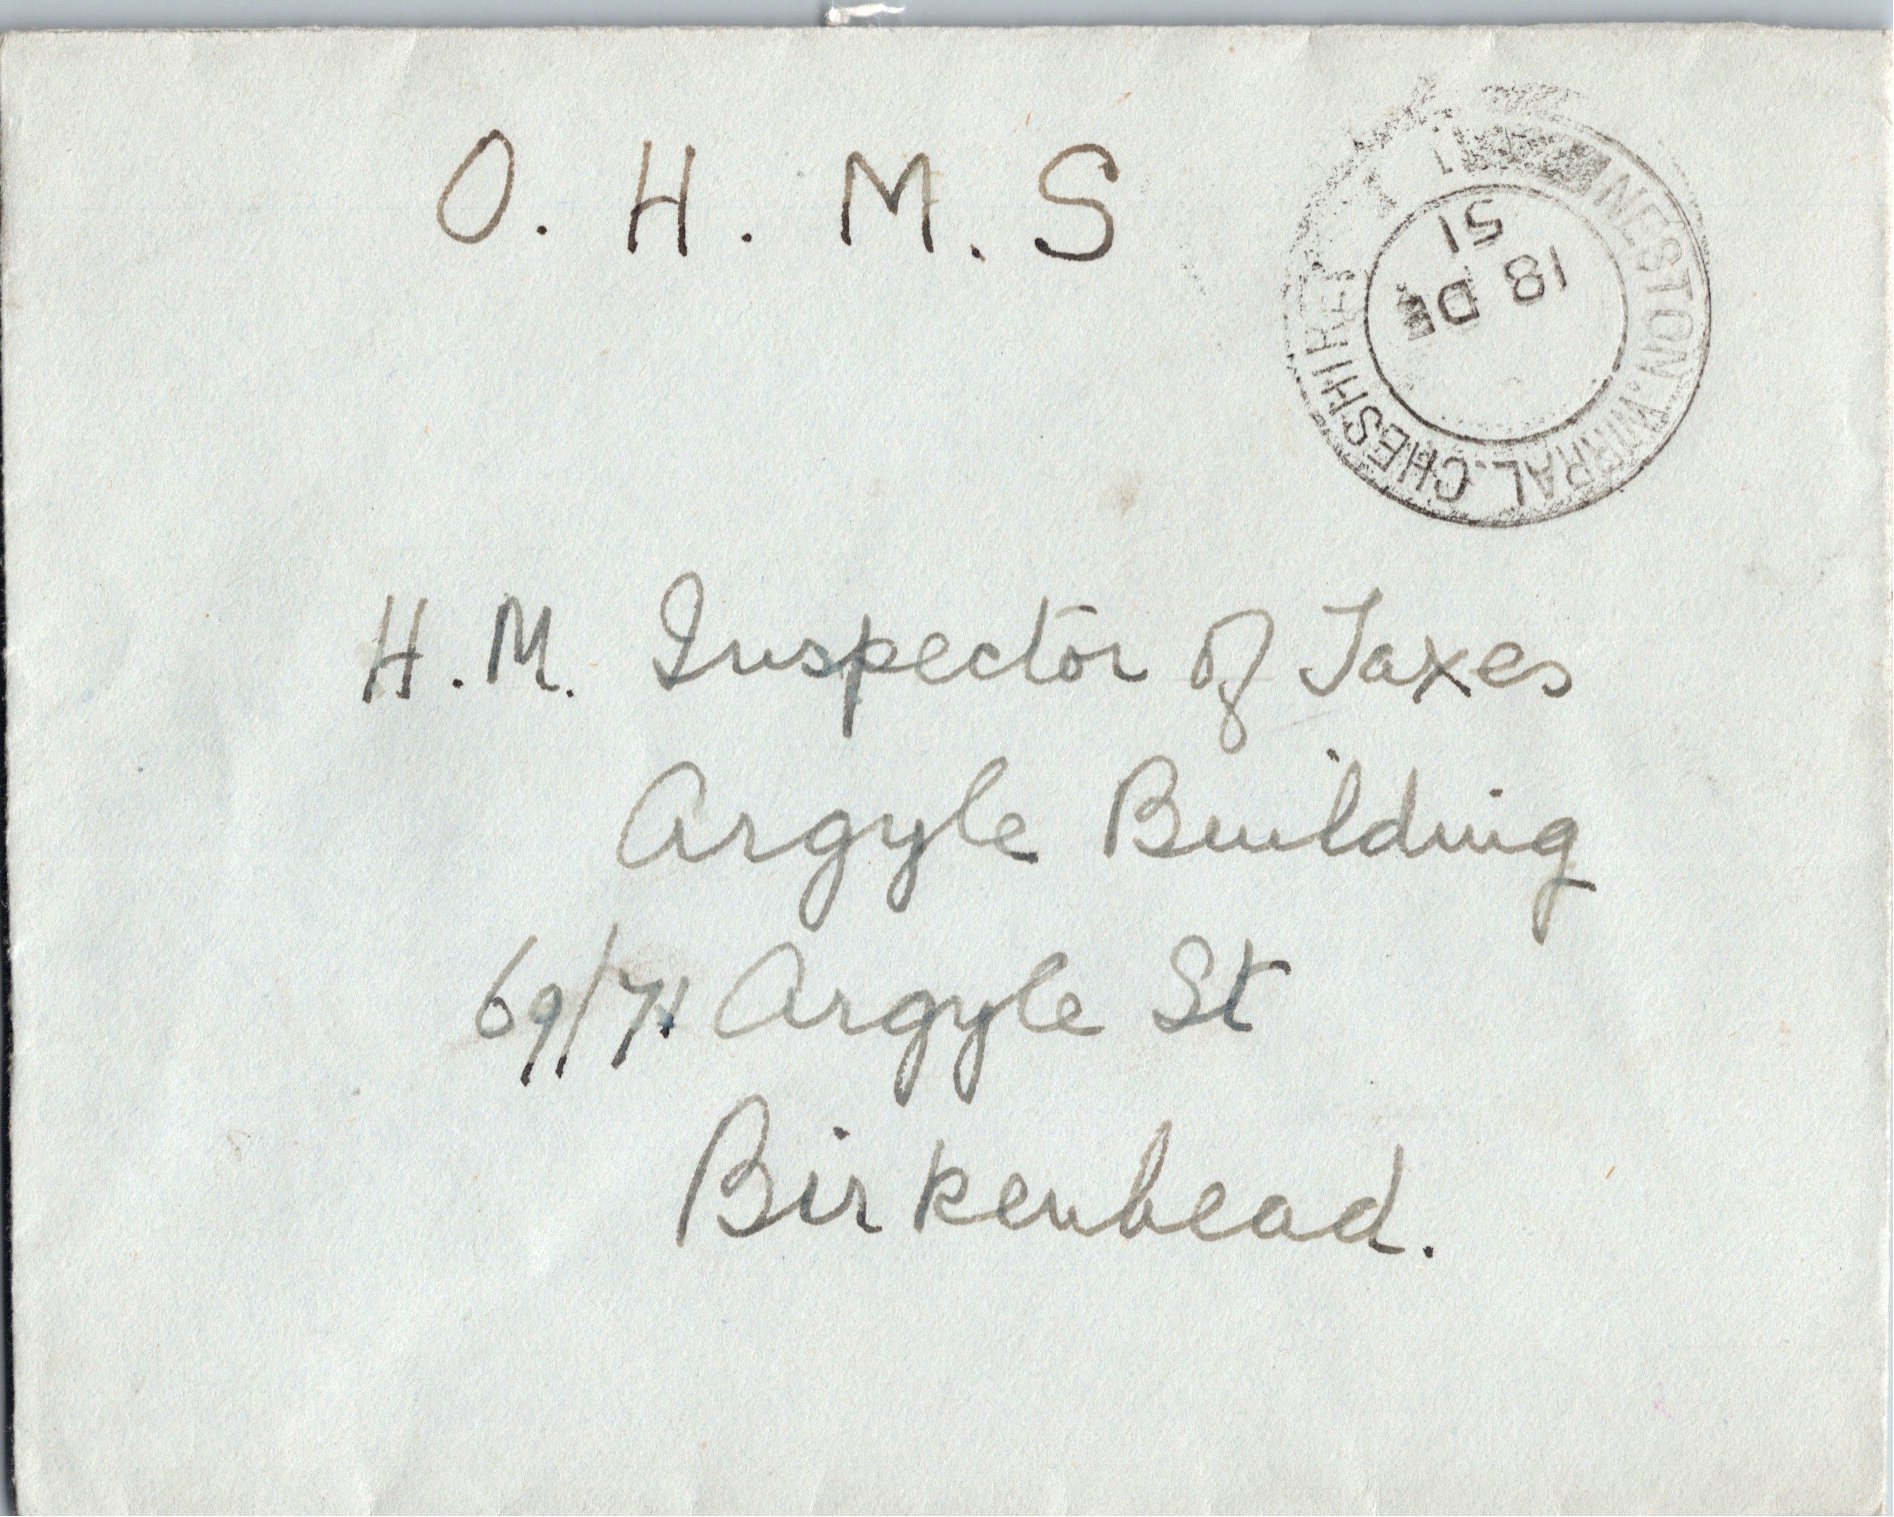 O. H. M. S
NESTON. WIRRAL. CHESHIRE
18 DE
51
H. M. Inspector of Taxes
Argyle Building
69/71 Argyle St
Birkenhead.